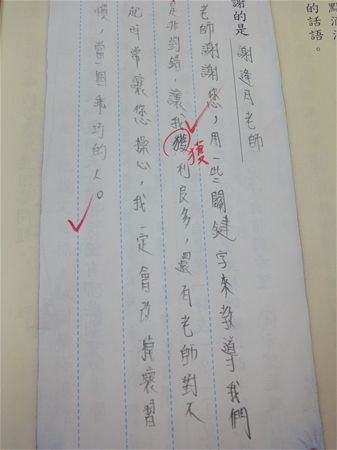 的話語。
謝的是 謝逢月老師
老師謝謝您，用一些關鍵字來教導我們
是非對錯，讓我獲利良多，還有老師對不
獲
起時常讓您操心，我一定會改掉壞習
慣，當一個乖巧的人。